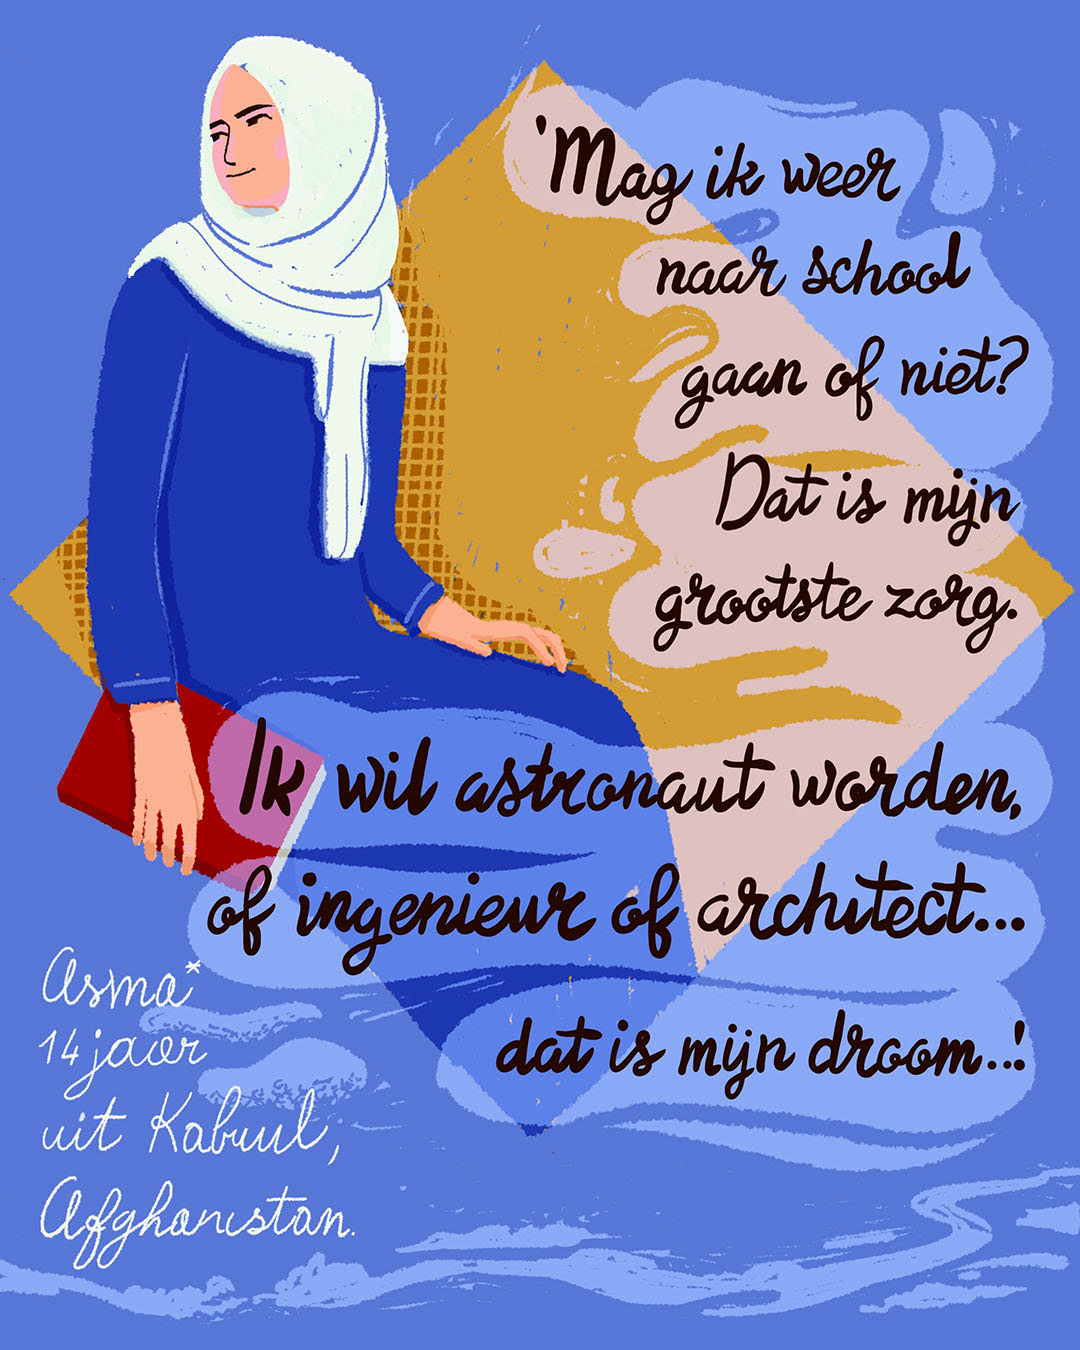 'Mag ik weer
naar school
gaan of niet?
Dat is mijn
grootste zorg.
Ik wil astronaut worden,
of ingenieur of architect...
dat is mijn droom..!'
Asma*
14 jaar
uit Kabul,
Afghanistan.